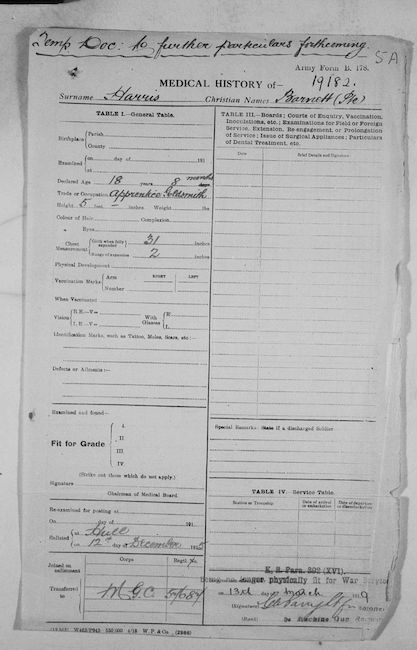 Temp Doc: to further particulars forthcoming.
5A
Army Form B. 178.
MEDICAL HISTORY of—
19182.
Surname Harris Christian Names Barnett (Pte)
TABLE I.—General Table.
Birthplace Parish
County
Examined on day of 191
at
Declared Age 18 years 8 months days
Trade or Occupation Apprentice Goldsmith
Height 5 feet – inches Weight lbs
Colour of Hair Complexion
Eyes
Chest Measurement Girth when fully expanded 31 inches
Range of expansion 2 inches
Physical Development
RIGHT LEFT
Vaccination Marks Arm
Number
When Vaccinated
Vision R.E.—V= With Glasses R.
L.E.—V= L.
Identification Marks, such as Tattoo, Moles, Scars, etc:—
Defects or Ailments:—
Examined and found—
Fit for Grade
I.
II
III
IV
(Strike out those which do not apply.)
Signature
Chairman of Medical Board
Re-examined for posting at
On day of 191
Enlisted at Hull
on 12th day of December 1915
Corps Regtl No.
Joined on enlistment
Transferred to M.G.C.
TABLE III.—Boards; Courts of Enquiry, Vaccination,
Inoculations, etc.; Examinations for Field or Foreign
Service, Extension, Re-engagement, or Prolongation
of Service; Issue of Surgical Appliances; Particulars
of Dental Treatment, etc.
Date Brief Details and Signature
Special Remarks: State if a discharged Soldier
TABLE IV.—Service Table.
Station or Troopship Date of arrival or embarkation Date of departure or disembarkation
K. R. Para. 392 (XVI).
longer physically fit for War Service
on 13th day of March 1919
(Signature)
(Rank) Machine Gun
W.P.& Co.